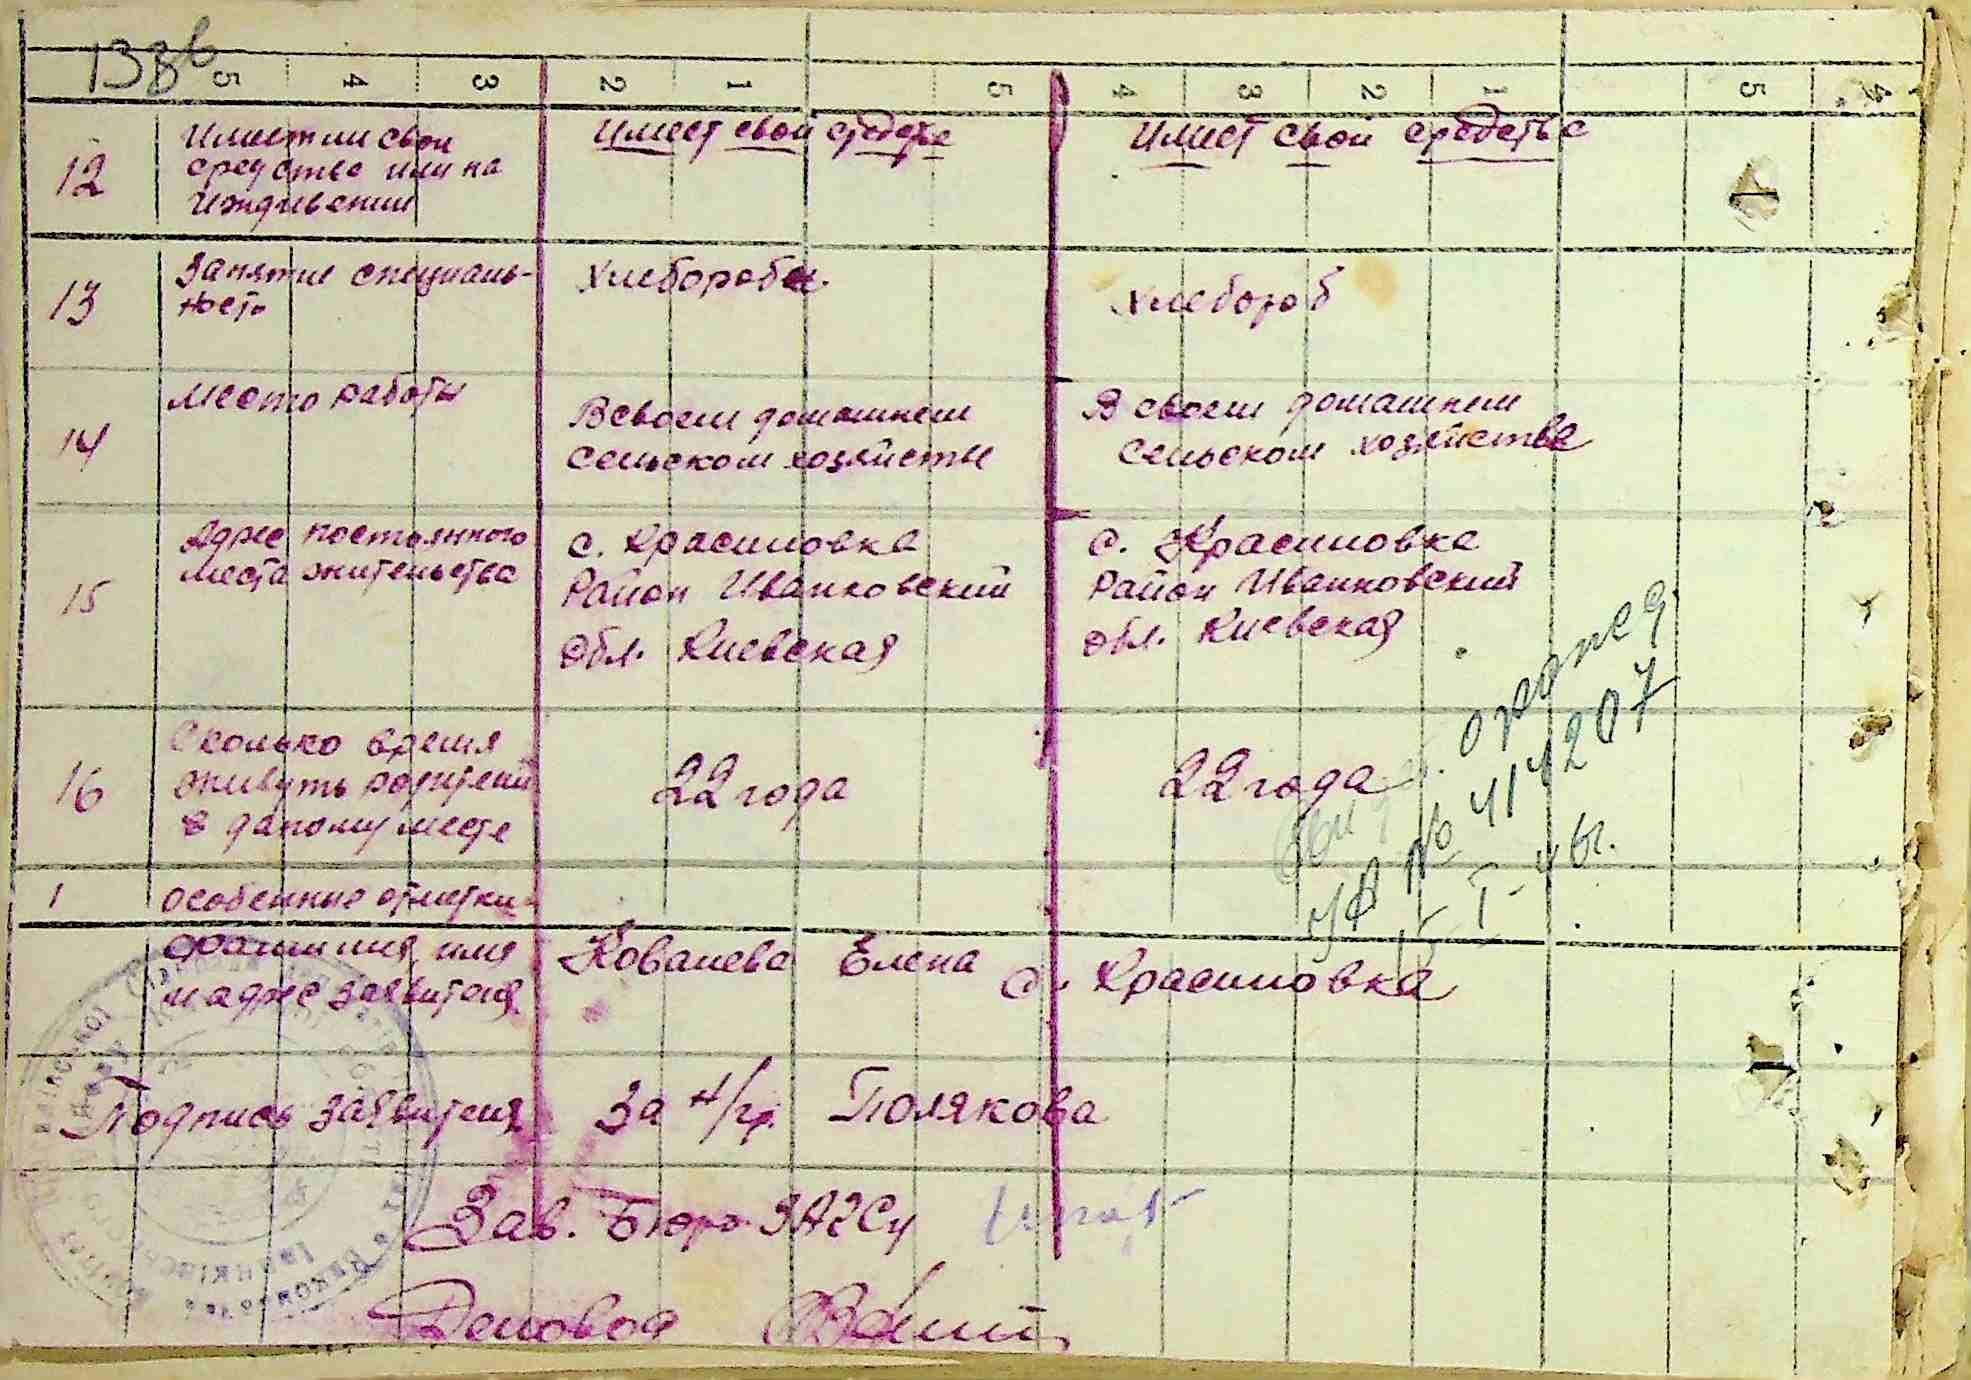 138в
5 4 3 2 1 5 4 3 2 1 5 4
12 Имеет ли свои Имеет свои средства Имеет свои средства
средства или на
иждивении
13 Занятие специаль- Хлеборобы. Хлебороб
ность
14 Место работы В своем домашнем В своем домашнем
сельском хозяйстве сельском хозяйстве
15 Адрес постоянного с. Красиловка с. Красиловка
места жительства Район Иванковский Район Иванковский
обл. Киевская обл. Киевская
16 Сколько время
живуть родители 22 года 22 года
в даному месте
1 особенные отметки
УА № 414207
фамилия, имя Ковалева Елена с. Красиловка
и адрес заявителя
Подпись заявителя За н/гр. Полякова
Зав. Бюро ЗАГСу
Деловод